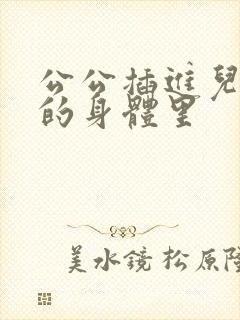 公公插進兒
的身體里
美水鏡 松原隆